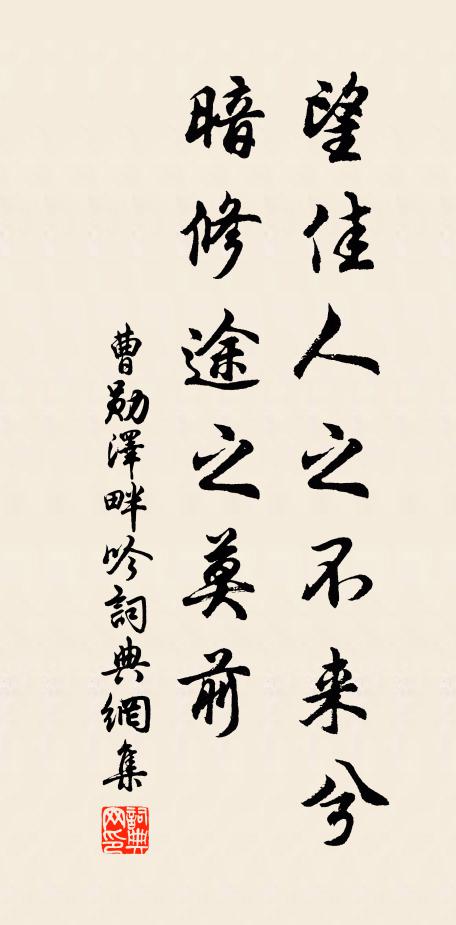 望佳人之不来兮
暗修途之莫前
曹勛澤畔吟詞典網集
詞典网印